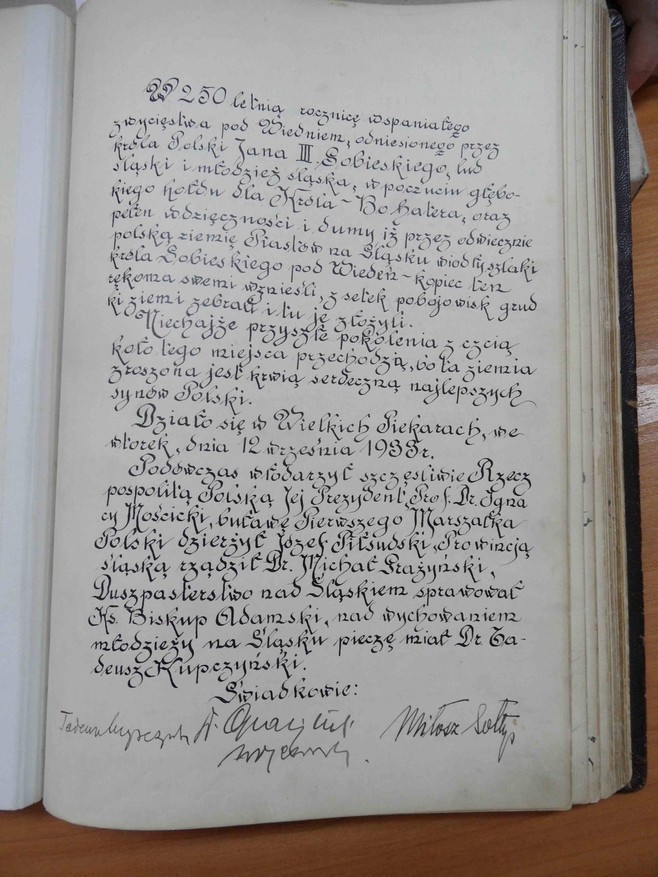 W 250 letnią rocznicę wspaniałego
zwycięstwa pod Wiedniem, odniesionego przez
króla Polski Jana III. Sobieskiego, lud
śląski i młodzież śląska, w poczuciu głębo-
kiego hołdu dla Króla-Bohatera, oraz
pełen wdzięczności i dumy iż przez odwiecznie
polską ziemię Piastów na Śląsku wiodły szlaki
króla Sobieskiego pod Wiedeń - kopiec ten
rękoma swemi wznieśli, z setek pobojowisk grud
ki ziemi zebrali i tu je złożyli.
Niechajże przyszłe pokolenia z czcią
koło tego miejsca przechodzą, bo ta ziemia
zroszona jest krwią serdeczną najlepszych
synów Polski.
Działo się w Wielkich Piekarach, we
wtorek, dnia 12 września 1933r.
Podówczas włodarzył szczęśliwie Rzecz
pospolitą Polską Jej Prezydent, Prof. Dr. Igna
cy Mościcki, buławę Pierwszego Marszałka
Polski dzierżył Józef Piłsudski, Prowincją
śląską rządził Dr. Michał Grażyński,
Duszpasterstwo nad Śląskiem sprawował
Ks. Biskup Adamski, nad wychowaniem
młodzieży na Śląsku pieczę miał Dr. Ta-
deusz Kupczyński.
Świadkowie:
Miłosz Sołtys